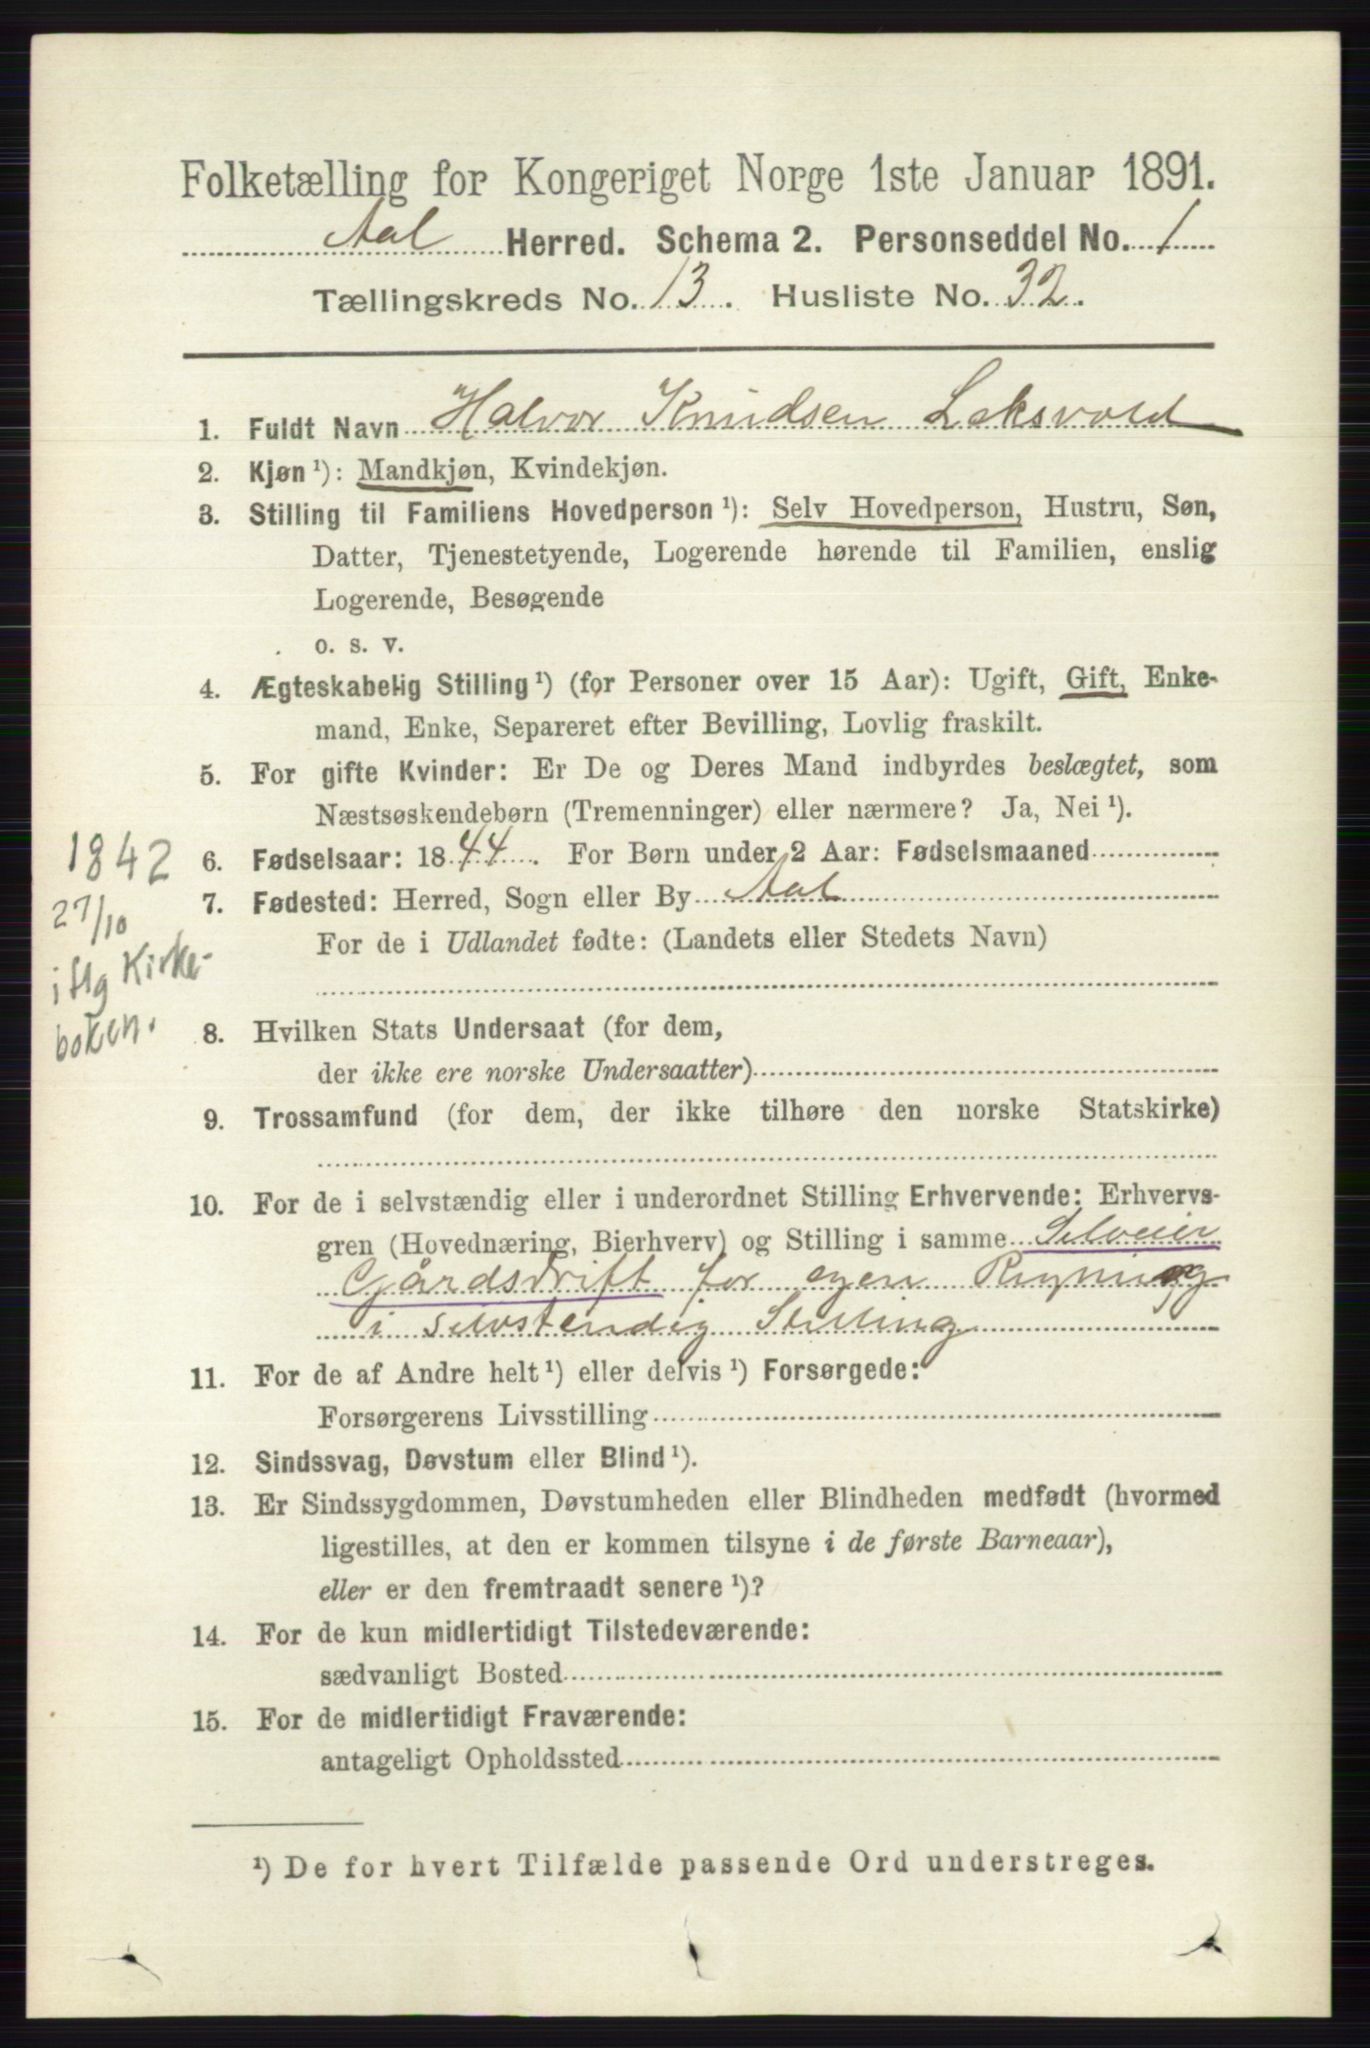 Folketælling for Kongeriget Norge 1ste Januar 1891.
Aal Herred. Schema 2. Personseddel No. 1
Tællingskreds No. 13. Husliste No. 32.
1. Fuldt Navn Halvor Knudsen Leksvold
2. Kjøn ¹): Mandkjøn, Kvindekjøn.
3. Stilling til Familiens Hovedperson ¹): Selv Hovedperson, Hustru, Søn,
Datter, Tjenestetyende, Logerende hørende til Familien, enslig
Logerende, Besøgende
o. s. v.
4. Ægteskabelig Stilling ¹) (for Personer over 15 Aar): Ugift, Gift, Enke-
mand, Enke, Separeret efter Bevilling, Lovlig fraskilt.
5. For gifte Kvinder: Er De og Deres Mand indbyrdes beslægtet, som
Næstsøskendebørn (Tremenninger) eller nærmere? Ja, Nei ¹).
6. Fødselsaar: 1844. For Børn under 2 Aar: Fødselsmaaned
7. Fødested: Herred, Sogn eller By Aal
For de i Udlandet fødte: (Landets eller Stedets Navn)
1842
27/10
iflg Kirke-
boken.
8. Hvilken Stats Undersaat (for dem,
der ikke ere norske Undersaatter)
9. Trossamfund (for dem, der ikke tilhøre den norske Statskirke)
10. For de i selvstændig eller i underordnet Stilling Erhvervende: Erhvervs-
gren (Hovednæring, Bierhverv) og Stilling i samme Selveier
Gårdsdrift for egen Regning
i selvstendig Stilling
11. For de af Andre helt ¹) eller delvis ¹) Forsørgede:
Forsørgerens Livsstilling
12. Sindssvag, Døvstum eller Blind ¹).
13. Er Sindssygdommen, Døvstumheden eller Blindheden medfødt (hvormed
ligestilles, at den er kommen tilsyne i de første Barneaar),
eller er den fremtraadt senere ¹)?
14. For de kun midlertidigt Tilstedeværende:
sædvanligt Bosted
15. For de midlertidigt Fraværende:
antageligt Opholdssted
¹) De for hvert Tilfælde passende Ord understreges.